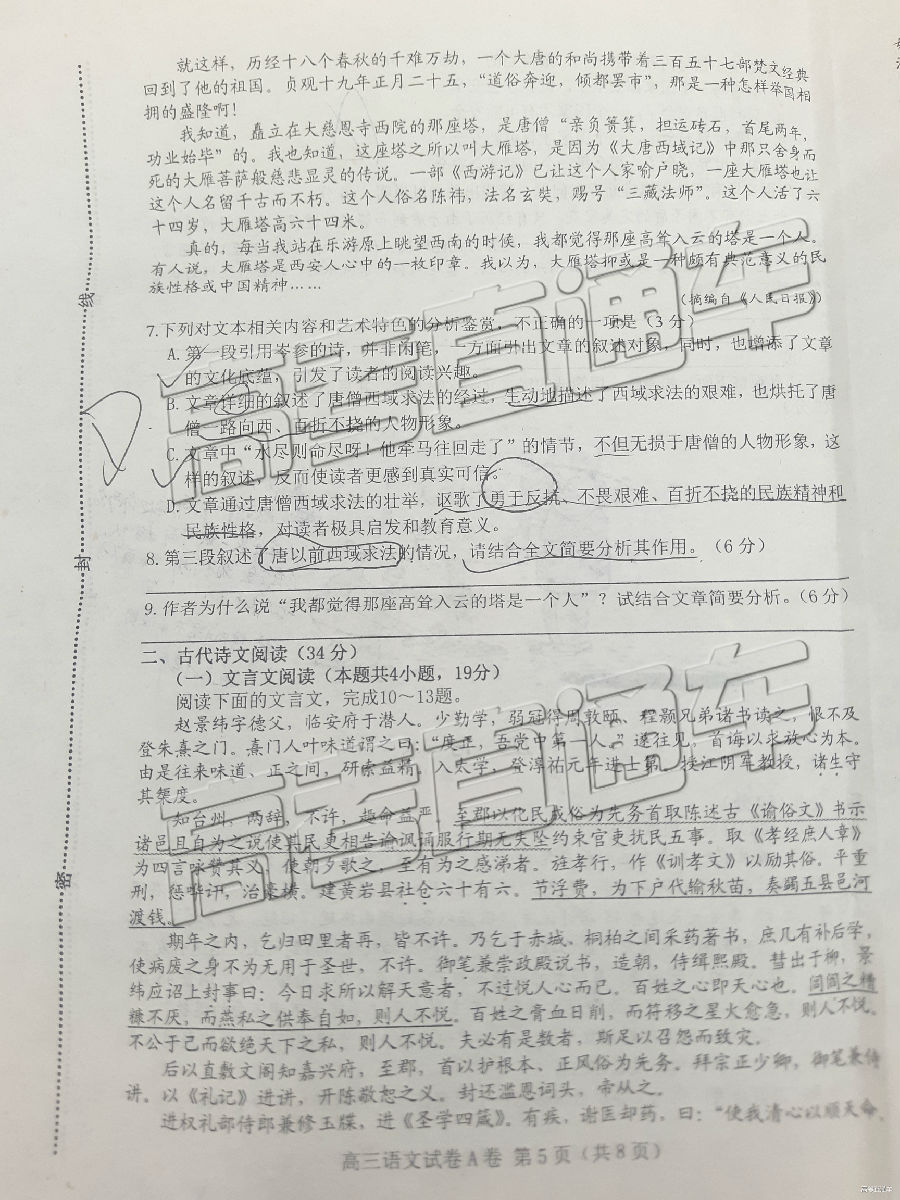 就这样，历经十八个春秋的千难万劫，一个大唐的和尚携带着三百五十七部梵文经典
回到了他的祖国。贞观十九年正月二十五，“道俗奔迎，倾都罢市”，那是一种怎样举国相
拥的盛隆啊！
我知道，矗立在大慈恩寺西院的那座塔，是唐僧“亲负篑箕，担运砖石，首尾两年，
功业始毕”的。我也知道，这座塔之所以叫大雁塔，是因为《大唐西域记》中那只舍身而
死的大雁菩萨般慈悲显灵的传说。一部《西游记》已让这个人家喻户晓，一座大雁塔也让
这个人名留千古而不朽。这个人俗名陈祎，法名玄奘，赐号“三藏法师”。这个人活了六
十四岁，大雁塔高六十四米。
真的，每当我站在乐游原上眺望西南的时候，我都觉得那座高耸入云的塔是一个人。
有人说，大雁塔是西安人心中的一枚印章。我以为，大雁塔抑或是一种颇有典范意义的民
族性格或中国精神……
（摘编自《人民日报》）
7.下列对文本相关内容和艺术特色的分析鉴赏，不正确的一项是（3分）
A.第一段引用岑参的诗，并非闲笔，一方面引出文章的叙述对象，同时，也增添了文章
的文化底蕴，引发了读者的阅读兴趣。
B.文章详细的叙述了唐僧西域求法的经过，生动地描述了西域求法的艰难，也烘托了唐
僧一路向西、百折不挠的人物形象。
C.文章中“水尽则命尽呀！他牵马往回走了”的情节，不但无损于唐僧的人物形象，这
样的叙述，反而使读者更感到真实可信。
D.文章通过唐僧西域求法的壮举，讴歌了勇于反抗、不畏艰难、百折不挠的民族精神和
民族性格，对读者极具启发和教育意义。
D
8.第三段叙述了唐以前西域求法的情况，请结合全文简要分析其作用。（6分）
9.作者为什么说“我都觉得那座高耸入云的塔是一个人”？试结合文章简要分析。（6分）
二、古代诗文阅读（34分）
（一）文言文阅读（本题共4小题，19分）
阅读下面的文言文，完成10～13题。
赵景纬字德父，临安府于潜人。少勤学，弱冠得周敦颐、程颢兄弟诸书读之，恨不及
登朱熹之门。熹门人叶味道谓之曰：“度正，吾党中第一人。”遂往见，首诲以求放心为本。
由是往来味道、正之间，研索益精。入太学，登淳祐元年进士第。授江阴军教授，诸生守
其榘度。
知台州，两辞，不许，趣命益严，至郡以化民成俗为先务首取陈述古《谕俗文》书示
诸邑且自为之说使其民更相告谕讽诵服行期无失坠约束官吏扰民五事。取《孝经庶人章》
为四言咏赞其义，使朝夕歌之，至有为之感涕者。旌孝行，作《训孝文》以励其俗。平重
刑，惩哗讦，治豪横。建黄岩县社仓六十有六。节浮费，为下户代输秋苗，奏蠲五县邑河
渡钱。
期年之内，乞归田里者再，皆不许。乃乞于赤城、桐柏之间采药著书，庶几有补后学，
使病废之身不为无用于圣世，不许。御笔兼崇政殿说书，造朝，侍缉熙殿。彗出于柳，景
纬应诏上封事曰：今日求所以解天意者，不过悦人心而已。百姓之心即天心也。闾阎之糟
糠不厌，而燕私之供奉自如，则人不悦。百姓之膏血日削，而符移之星火愈急，则人不悦。
不公于己而欲绝天下之私，则人不悦。夫必有是数者，斯足以召怨而致灾。
后以直敷文阁知嘉兴府，至郡，首以护根本、正风俗为先务。拜宗正少卿，御笔兼侍
讲。以《礼记》进讲，开陈敬恕之义。封还滥恩词头，帝从之。
进权礼部侍郎兼修玉牒，进《圣学四箴》。有疾，谢医却药，曰：“使我清心以顺天命，
高三语文试卷A卷 第5页（共8页）
线
封
密
高考直通车
高考直通车